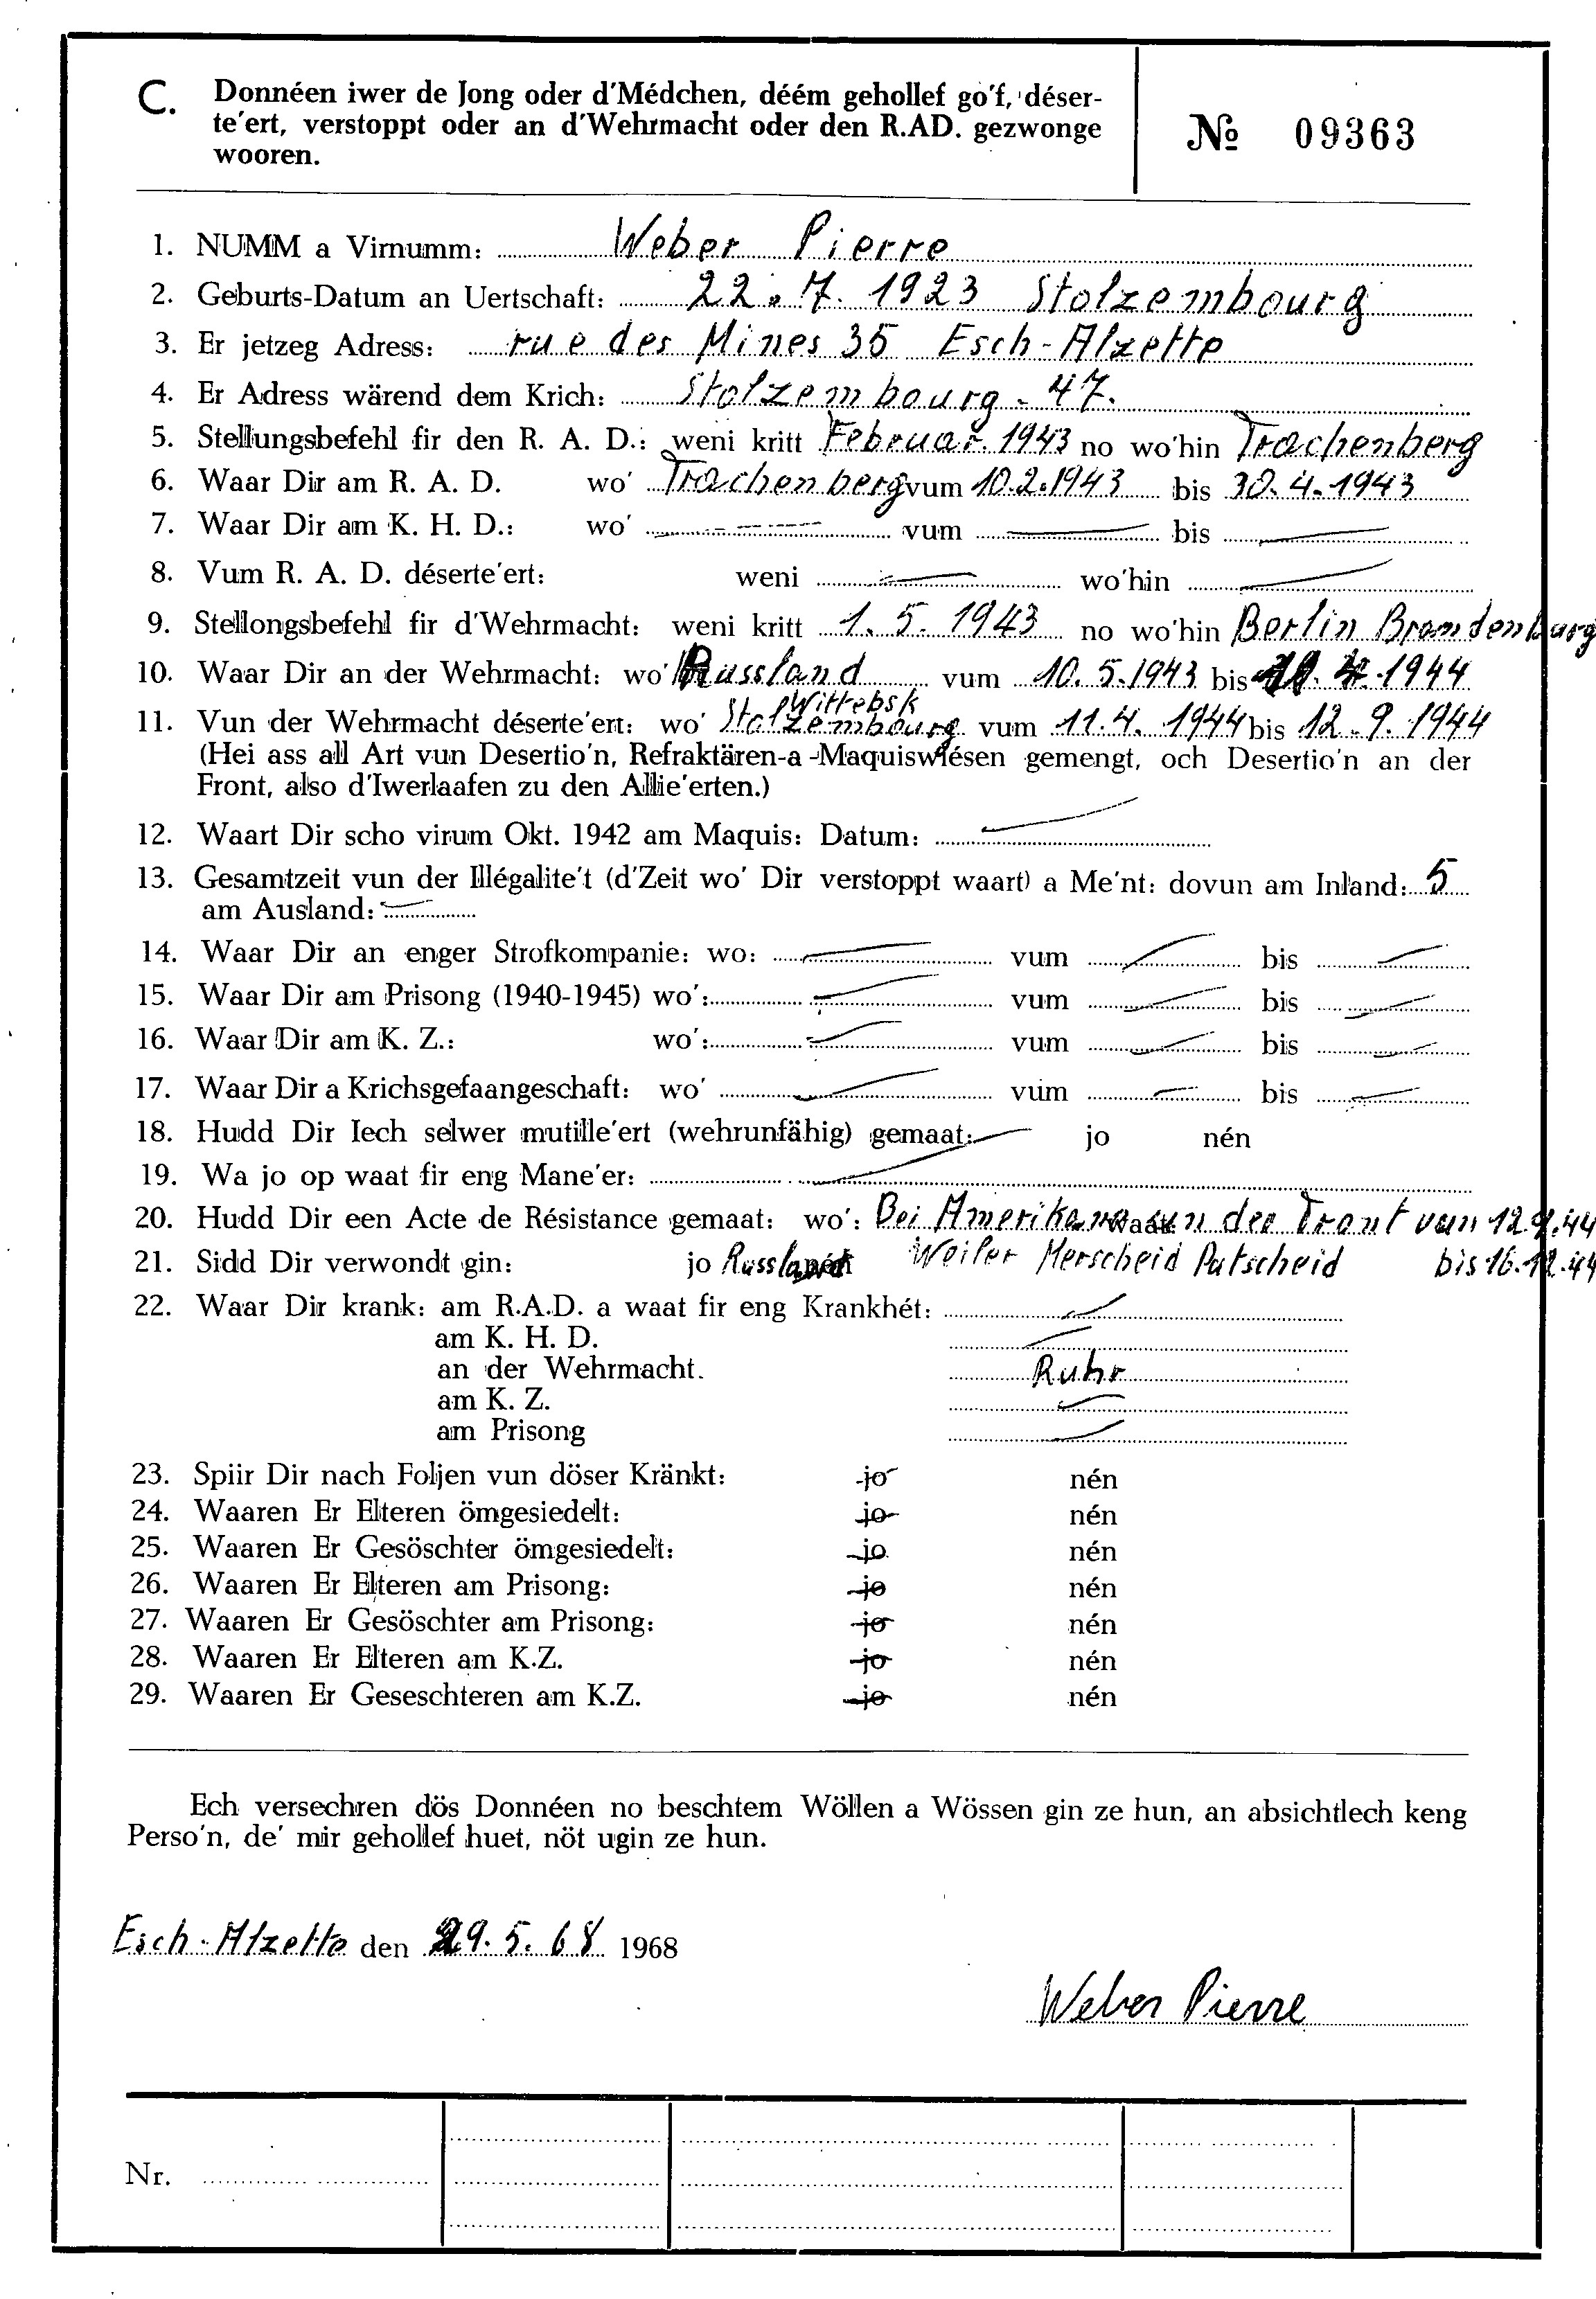 C. Donnéen iwer de Jong oder d'Médchen, déém gehollef go'f, déser-
te'ert, verstoppt oder an d'Wehrmacht oder den R.AD. gezwonge
wooren.
№ 09363
1. NUMM a Virnumm: Weber Pierre
2. Geburts-Datum an Uertschaft: 22.7.1923 Stolzembourg
3. Er jetzeg Adress: rue des Mines 35 Esch-Alzette
4. Er Adress wärend dem Krich: Stolzembourg - 47.
5. Stellungsbefehl fir den R. A. D.: weni kritt Februar. 1943 no wo'hin Trachenberg
6. Waar Dir am R. A. D. wo' Trachenberg vum 10.2.1943 bis 30.4.1943
7. Waar Dir am K. H. D.: wo' — vum — bis —
8. Vum R. A. D. déserte'ert: weni — wo'hin —
9. Stellongsbefehl fir d'Wehrmacht: weni kritt 1. 5. 1943 no wo'hin Berlin Brandenburg
10. Waar Dir an der Wehrmacht: wo' Russland vum 10.5.1943 bis 4.1944
Wittebsk
11. Vun der Wehrmacht déserte'ert: wo' Stolzembourg vum 11.4. 1944 bis 12.9.1944
(Hei ass all Art vun Desertio'n, Refraktären-a-Maquiswiésen gemengt, och Desertio'n an der
Front, also d'Iwerlaafen zu den Allie'erten.)
12. Waart Dir scho virum Okt. 1942 am Maquis: Datum: —
13. Gesamtzeit vun der Illégalite't (d'Zeit wo' Dir verstoppt waart) a Me'nt: dovun am Inland: 5
am Ausland: —
14. Waar Dir an enger Strofkompanie: wo: — vum — bis —
15. Waar Dir am Prisong (1940-1945) wo': — vum — bis —
16. Waar Dir am K. Z.: wo': — vum — bis —
17. Waar Dir a Krichsgefaangeschaft: wo' — vum — bis —
18. Hudd Dir Iech selwer mutille'ert (wehrunfähig) gemaat: — jo nén
19. Wa jo op waat fir eng Mane'er: —
20. Hudd Dir een Acte de Résistance gemaat: wo': Bei Amerikaner an der Front vun 12.9.44
21. Sidd Dir verwondt gin: jo Russland nén Weiler Merscheid Putscheid bis 16.12.44
22. Waar Dir krank: am R.A.D. a waat fir eng Krankhét: —
am K. H. D. —
an der Wehrmacht. Ruhr
am K. Z. —
am Prisong —
23. Spiir Dir nach Foljen vun döser Kränkt: jo nén
24. Waaren Er Elteren ömgesiedelt: jo nén
25. Waaren Er Gesöschter ömgesiedelt: jo nén
26. Waaren Er Elteren am Prisong: jo nén
27. Waaren Er Gesöschter am Prisong: jo nén
28. Waaren Er Elteren am K.Z. jo nén
29. Waaren Er Geseschteren am K.Z. jo nén
Ech versechren dös Donnéen no beschtem Wöllen a Wössen gin ze hun, an absichtlech keng
Perso'n, de' mir gehollef huet, nöt ugin ze hun.
Esch-Alzette den 29.5.68 1968
Weber Pierre
Nr.